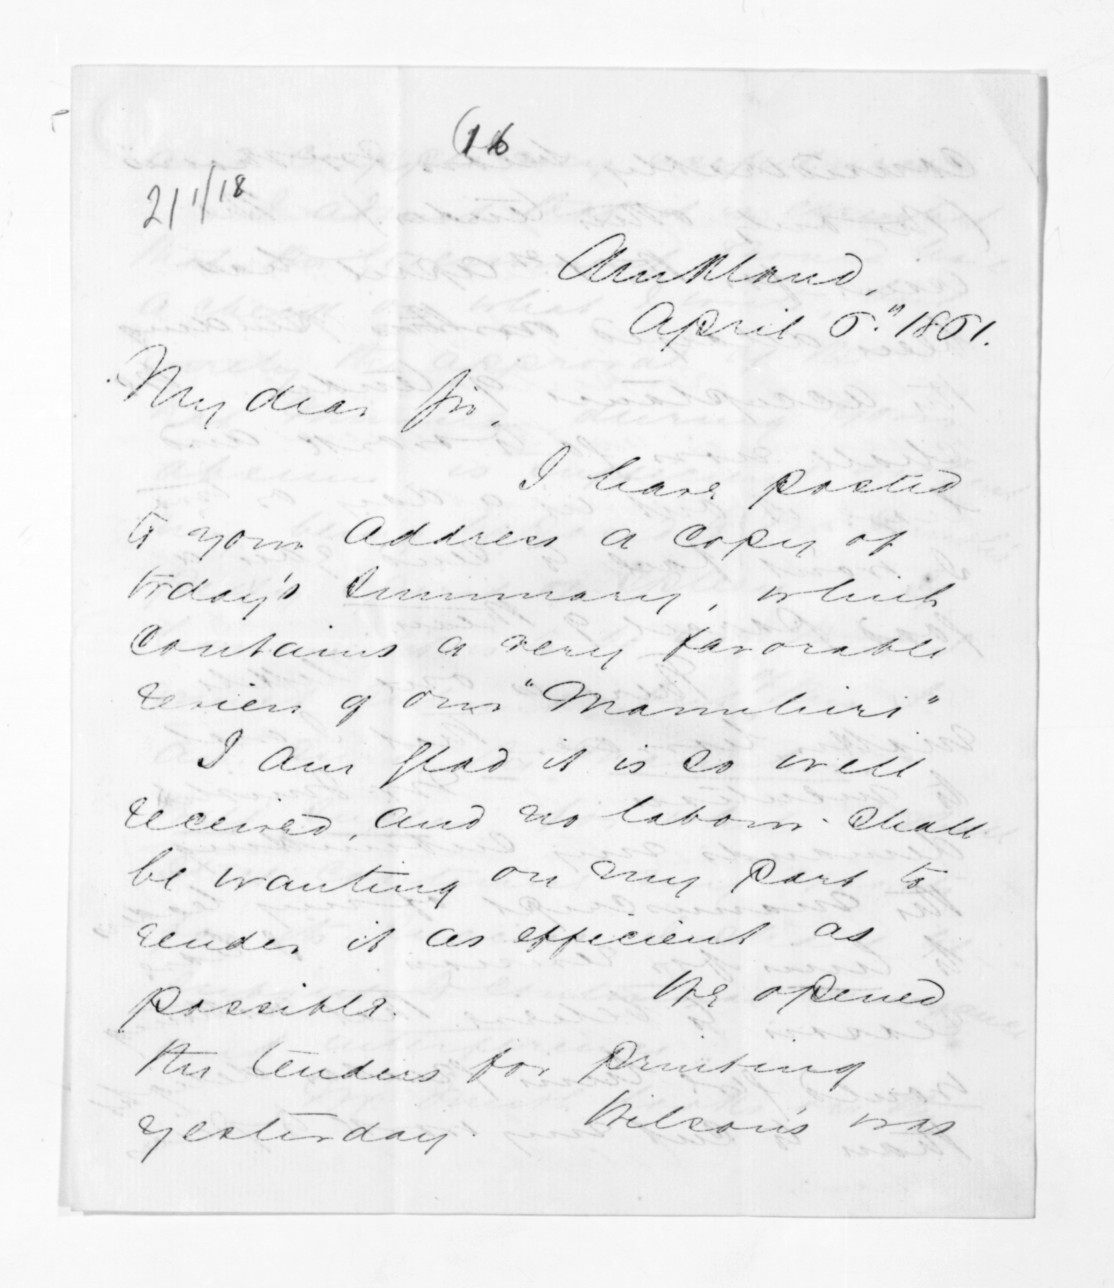 (16
211/18
Auckland,
April 5.th 1851.
My dear Sir,
I have posted
to your address a copy of
today's Summary, which
contains a very favorable
review of our "Mamihiri"
I am glad it is so well
received, and no labour shall
be wanting on my part to
render it as efficient as
possible. We opened
the tenders for printing
yesterday. Wilson's was